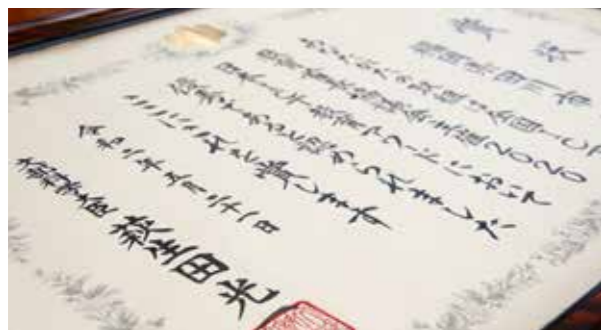 賞状
福岡県田川市
あなたがたの取組は全国ICT
教育首長協議会主催2020
日本ICT教育アワードにおいて
優秀であると認められました
ここにこれを賞します
令和二年五月二十一日
文部科学大臣
萩生田光